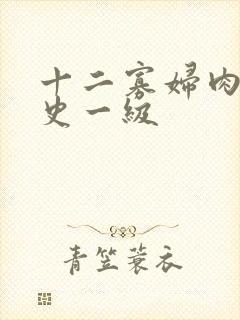 十二寡婦肉
史一級
青笠蓑衣